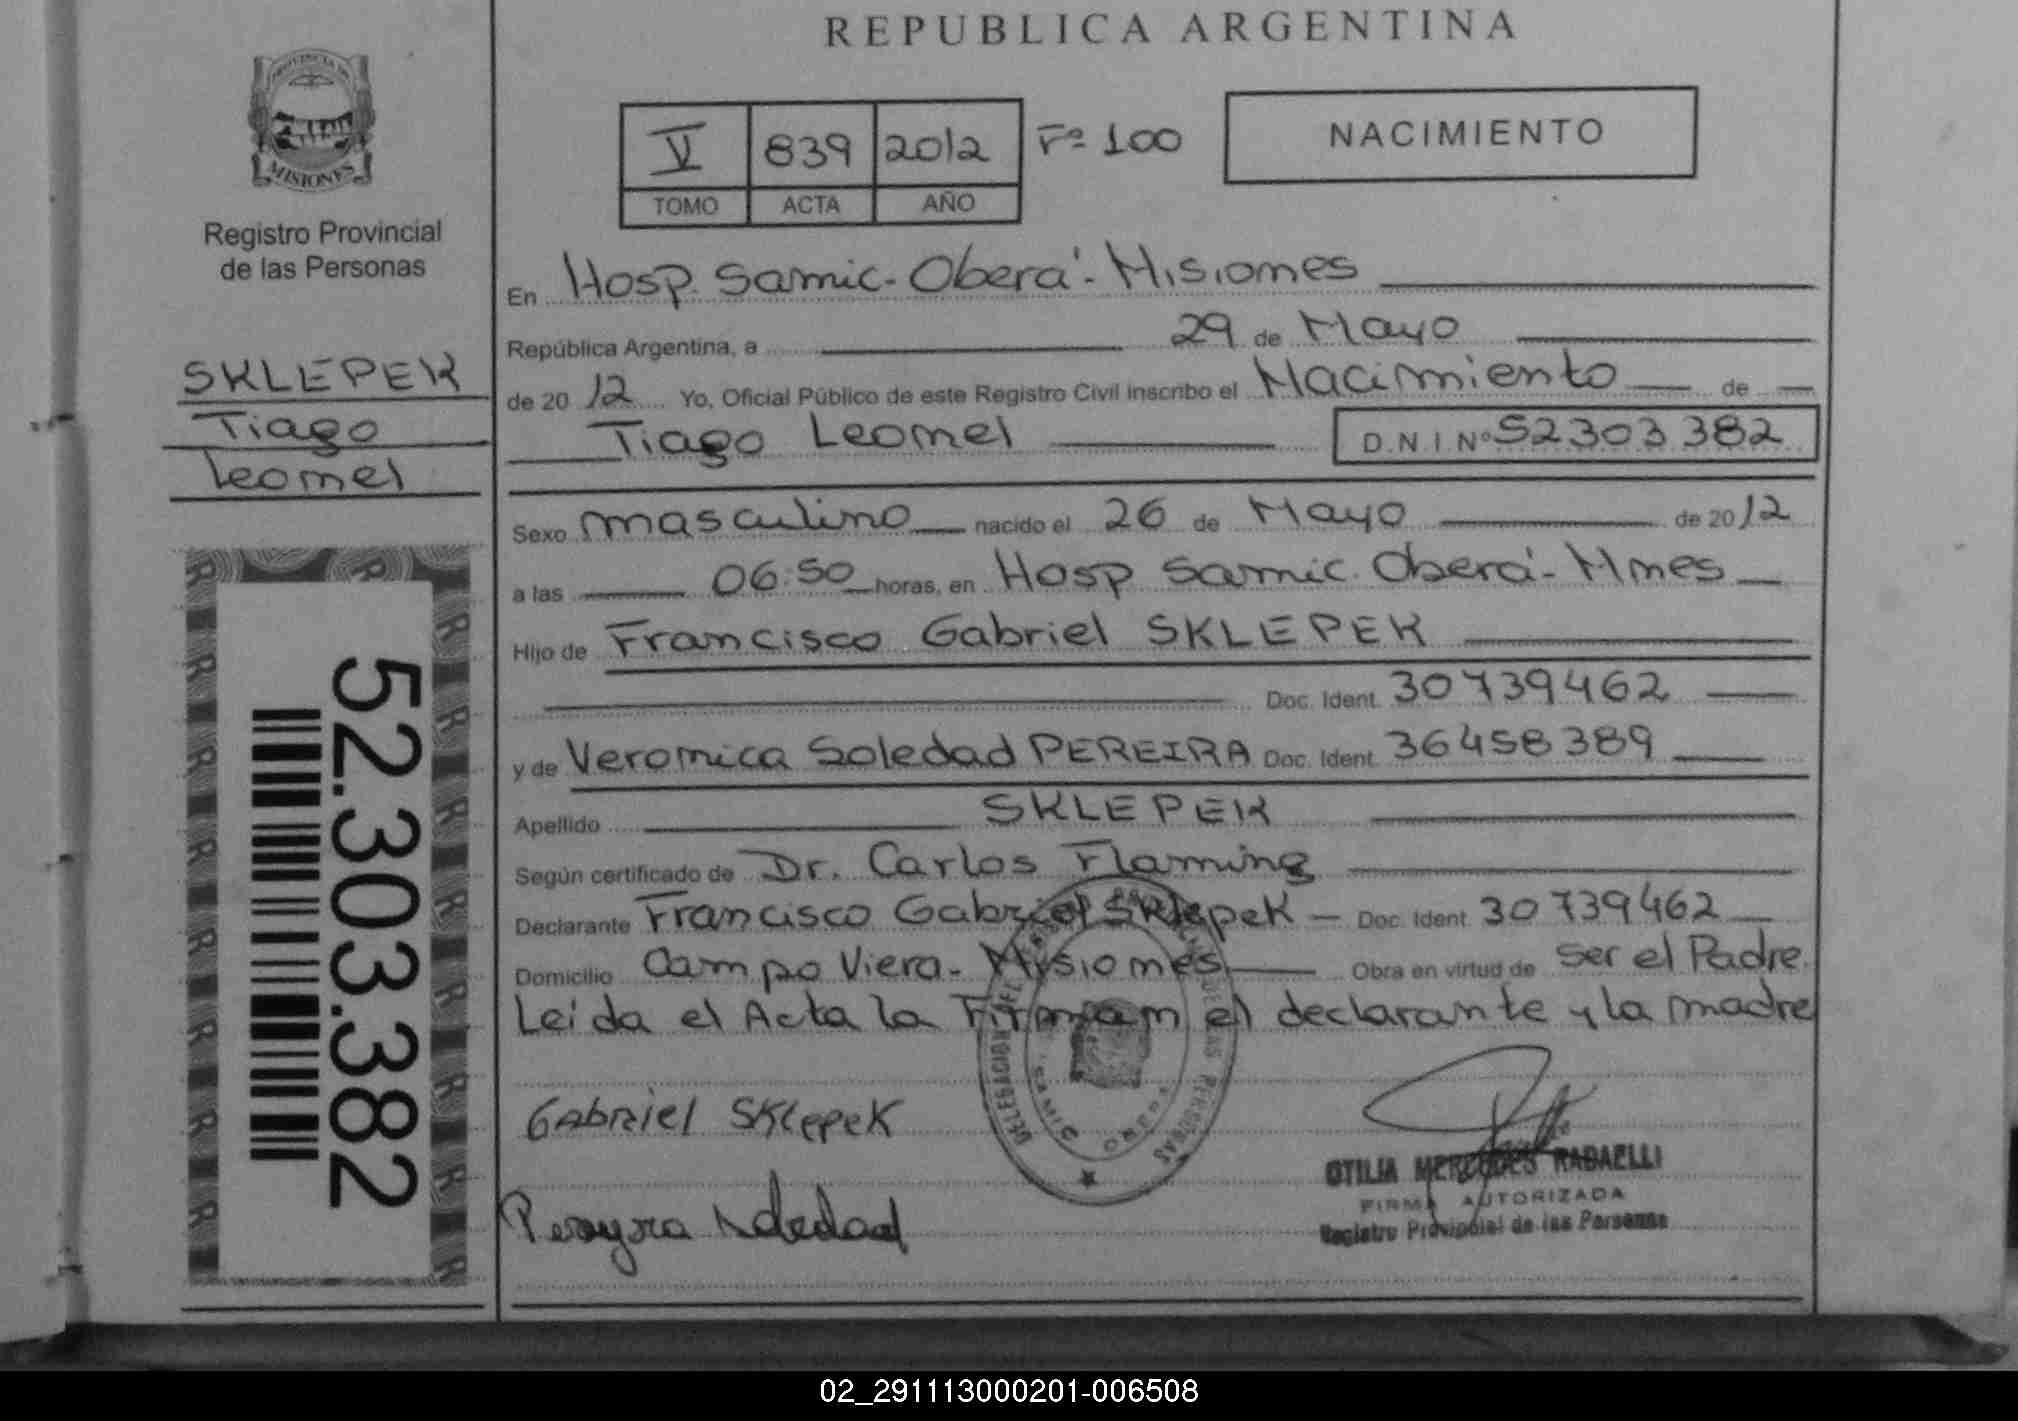 REPUBLICA ARGENTINA
PROVINCIA DE
MISIONES
Registro Provincial
de las Personas
V 839 2012 Fº 100
TOMO ACTA AÑO
NACIMIENTO
SKLEPEK
Tiago
Leonel
52.303.382
En Hosp. Samic - Oberá - Misiones
República Argentina, a 29 de Mayo
de 2012 Yo, Oficial Público de este Registro Civil inscribo el Nacimiento de
Tiago Leonel D.N.I Nº 52303382
Sexo masculino nacido el 26 de Mayo de 2012
a las 06:50 horas, en Hosp Samic. Oberá - Mnes
Hijo de Francisco Gabriel SKLEPEK
Doc. Ident. 30739462
y de Veronica Soledad PEREIRA Doc. Ident. 36458389
Apellido SKLEPEK
Según certificado de Dr. Carlos Flaming
Declarante Francisco Gabriel Sklepek - Doc. Ident. 30739462
Domicilio Campo Viera - Misiones Obra en virtud de ser el Padre.
Leída el Acta la Firman el declarante y la madre
Gabriel Sklepek
Pereyra Soledad
DELEGACION DEL DE LAS PERSONAS
OTILIA MERCEDES RABAELLI
FIRMA AUTORIZADA
Registro Provincial de las Personas
02_291113000201-006508